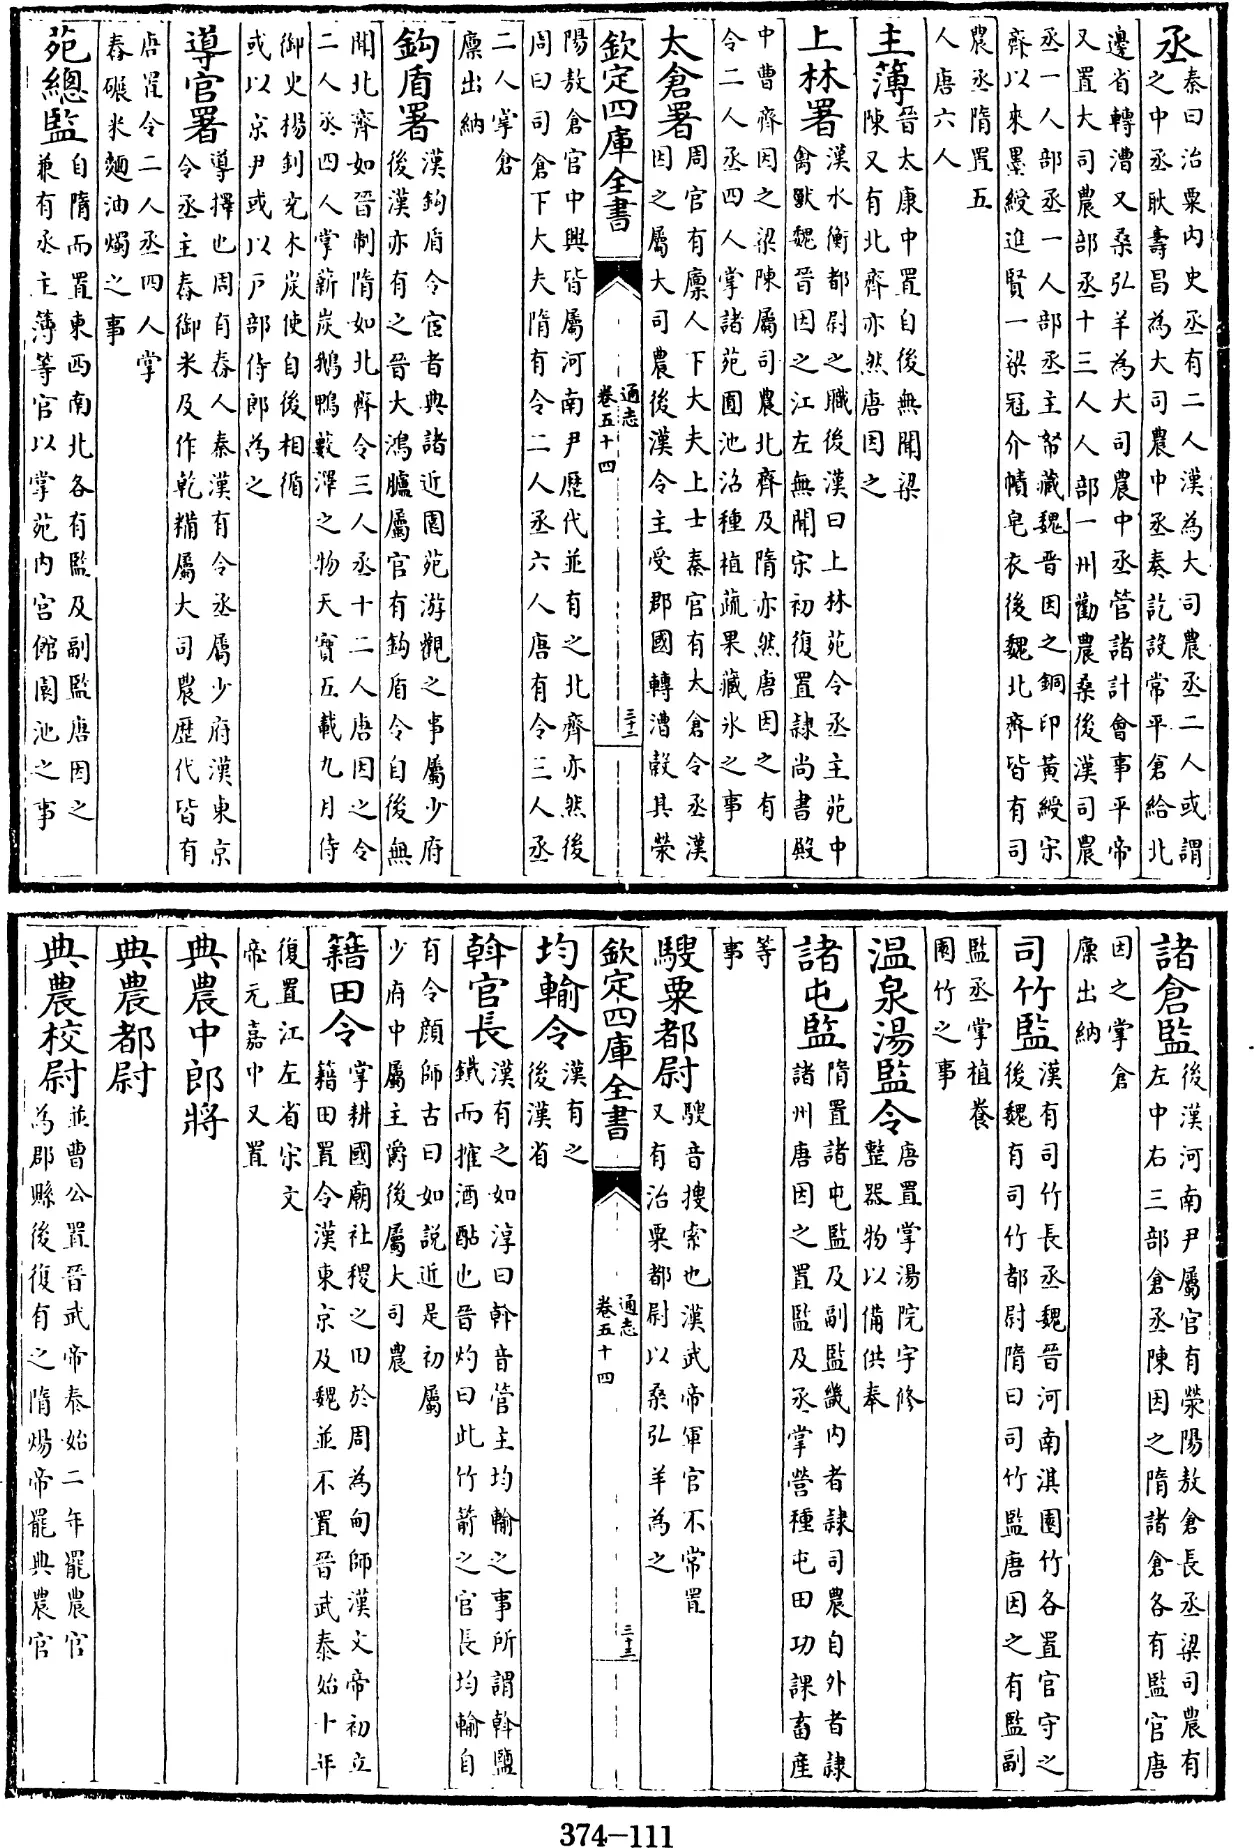 丞秦曰治粟内史丞有二人漢為大司農丞二人或謂
之中丞耿壽昌為大司農中丞奏訖設常平倉給北
邊省轉漕又桑弘羊為大司農中丞管諸計會事平帝
又置大司農部丞十三人人部一州勸農桑後漢司農
丞一人部丞一人部丞主帑藏魏晉因之銅印黄綬宋
齊以來墨綬進賢一梁冠介幘皂衣後魏北齊皆有司
農丞隋置五
人唐六人
主簿晉太康中置自後無聞梁
陳又有北齊亦然唐因之
上林署漢水衡都尉之職後漢曰上林苑令丞主苑中
禽獸魏晉因之江左無聞宋初復置隷尚書殿
中曹齊因之梁陳屬司農北齊及隋亦然唐因之有
令二人丞四人掌諸苑囿池沼種植蔬果藏氷之事
太倉署周官有廪人下大夫上士秦官有太倉令丞漢
因之屬大司農後漢令主受郡國轉漕榖其滎
欽定四庫全書
通志
卷五十四
三十二
陽敖倉官中興皆屬河南尹歴代並有之北齊亦然後
周曰司倉下大夫隋有令二人丞六人唐有令三人丞
二人掌倉
廪出納
鈎盾署漢鈎盾令宦者典諸近園苑游觀之事屬少府
後漢亦有之晉大鴻臚屬官有鈎盾令自後無
聞北齊如晉制隋如北齊令三人丞十二人唐因之令
二人丞四人掌薪炭鵝鴨藪澤之物天寳五載九月侍
御史楊釗充木炭使自後相循
或以京尹或以戸部侍郎為之
導官署導擇也周有舂人秦漢有令丞屬少府漢東京
令丞主舂御米及作乾糒屬大司農歴代皆有
唐置令二人丞四人掌
舂碾米麵油燭之事
苑總監自隋而置東西南北各有監及副監唐因之
兼有丞主簿等官以掌苑内宫館園池之事
諸倉監後漢河南尹屬官有滎陽敖倉長丞梁司農有
左中右三部倉丞陳因之隋諸倉各有監官唐
因之掌倉
廪出納
司竹監漢有司竹長丞魏晉河南淇園竹各置官守之
後魏有司竹都尉隋曰司竹監唐因之有監副
監丞掌植養
園竹之事
温泉湯監令唐置掌湯院宇修
整器物以備供奉
諸屯監隋置諸屯監及副監畿内者隷司農自外者隷
諸州唐因之置監及丞掌營種屯田功課畜産
等
事
騪粟都尉騪音搜索也漢武帝軍官不常置
又有治粟都尉以桑弘羊為之
欽定四庫全書
通志
卷五十四
三十三
均輸令漢有之
後漢省
斡官長漢有之如淳曰斡音管主均輸之事所謂斡鹽
鐵而搉酒酤也晉灼曰此竹箭之官長均輸自
有令顔師古曰如説近是初屬
少府中屬主爵後屬大司農
籍田令掌耕國廟社稷之田於周為甸師漢文帝初立
籍田置令漢東京及魏並不置晉武泰始十年
復置江左省宋文
帝元嘉中又置
典農中郎將
典農都尉
典農校尉並曹公置晉武帝泰始二年罷農官
為郡縣後復有之隋煬帝罷典農官
374-111